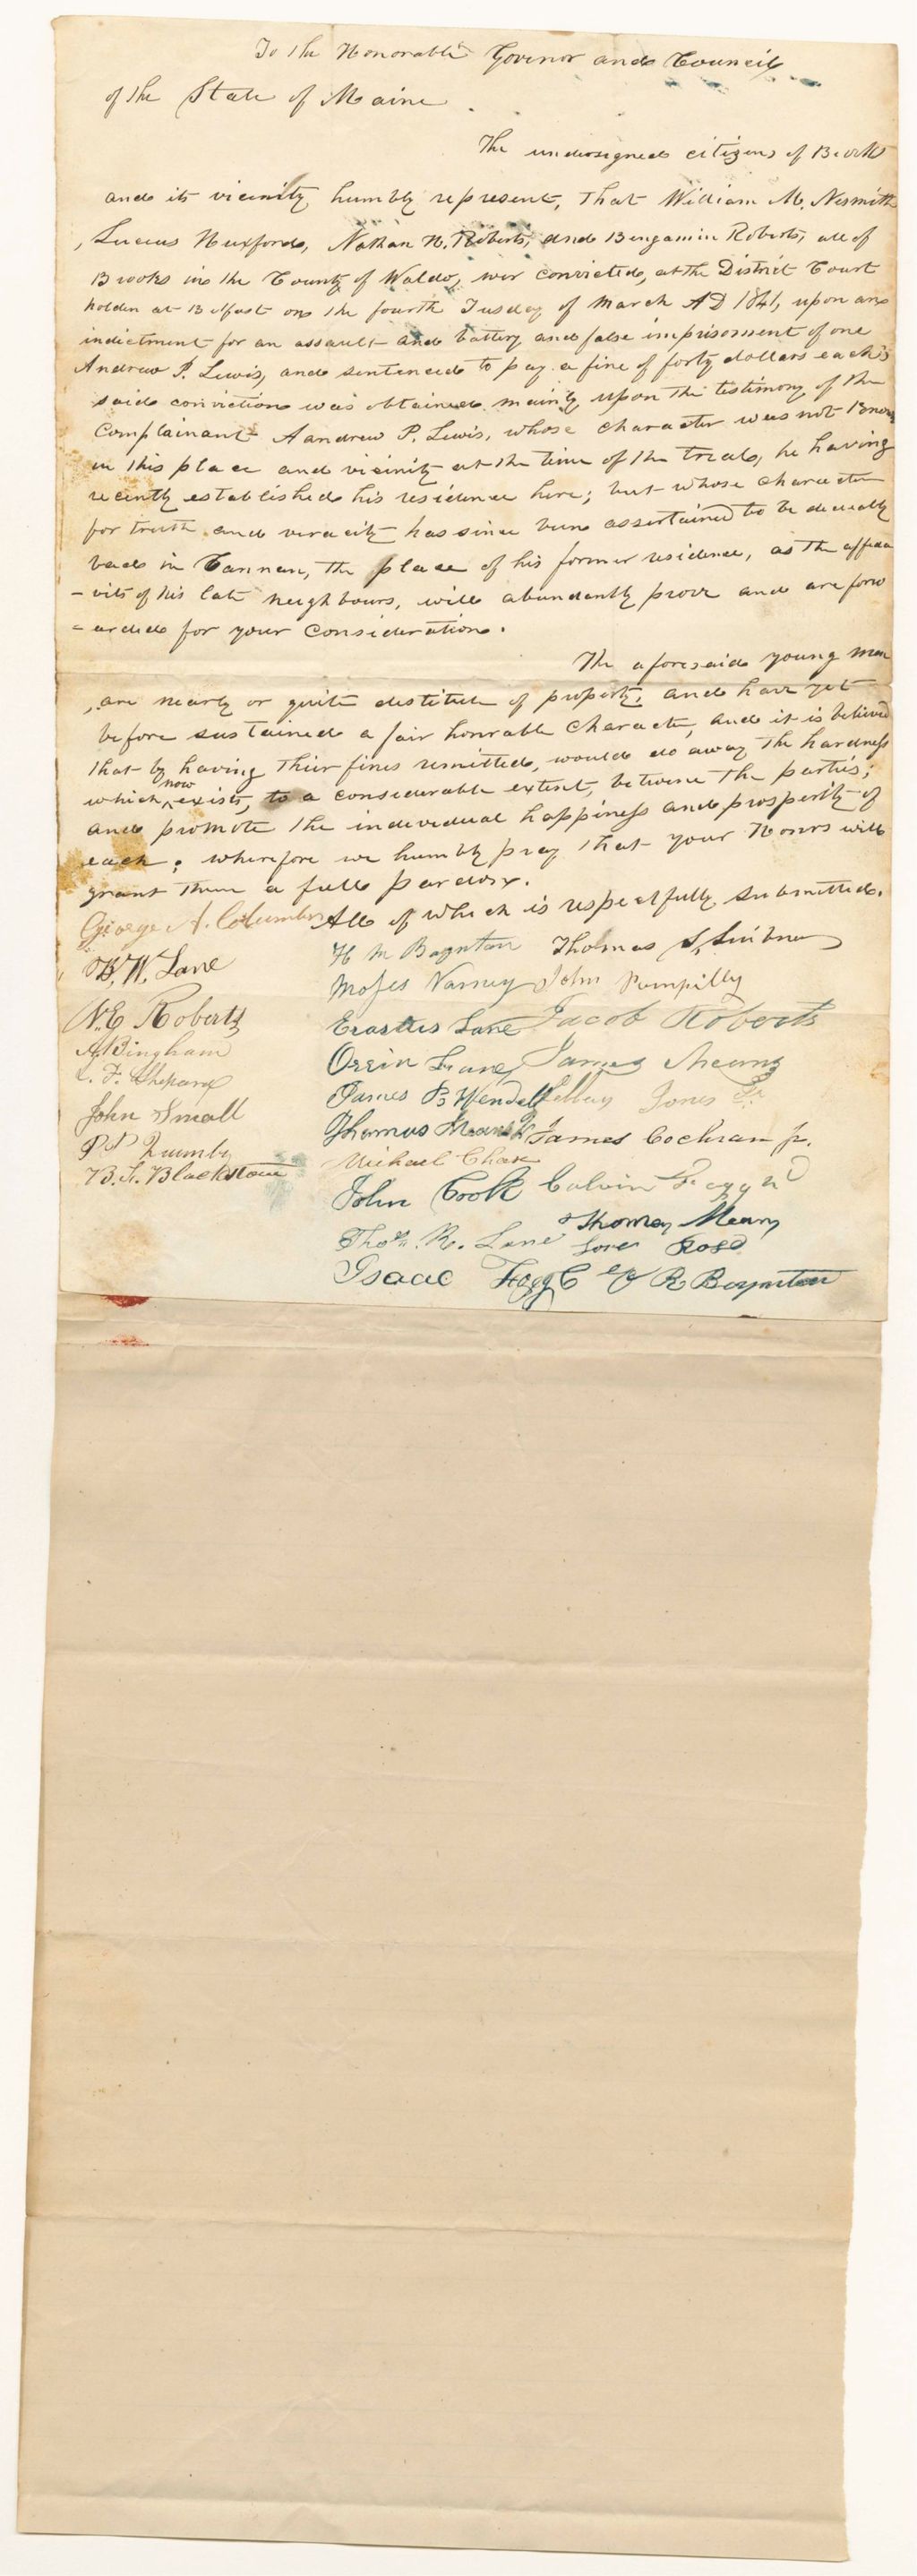 To the Honorable Govenor and Council
of the State of Maine.
The undersigned citizens of Brooks
and its vicinity humbly represent, That William M. Nesmith
, Lucius Huxford, Nathan N. Roberts, and Bengamin Roberts, all of
Brooks in the County of Waldo, wer convicted, at the District Court
holden at Belfast on the fourth Tusday of March AD 1841, upon an
indictment for an assault and battery and false imprisonment of one
Andrew P. Lewis, and sentenced to pay a fine of forty dollars each;
said conviction was obtained mainly upon the testimony of the
complainant Aandrew P. Lewis, whose character was not known
in this place and vicinity at the time of the trial, he having
recently established his residence here; but whose character
for truth and veracity has since been assertained to be decidedly
bad in Cannan, the place of his former residence, as the affida
-vits of his late neighbours, will abundantly prove and are forw
-arded for your consideration.
The aforesaid young men
, are nearly or quite destitute of property, and have yet
before sustained a fair honrable character, and it is believed
that by having their fines remitted, would do away the hardness
which now exists, to a considerable extent, between the parties;
and promote the individual happiness and prosperity of
each; wherefore we humbly pray that your Honors will
grant them a full pardon.
All of which is respectfully submitted.
George A. Columbus
W. Lane
N.E Roberts
A Bingham
F. Shepard
John Small
Quimby
B. F. Blackstone
H M Boynton Thomas S,
Moses Varney John Pumpilly
Erastus Lane Jacob Roberts
Orrin Lane James Means
James B Wendell Jones Jr
Thomas Means James Cochran jr.
Michael Chase
John Cook Calvin Fogg
Thomas Means
Thos. R. Lane Rose
Isaac Fogg R Boynton